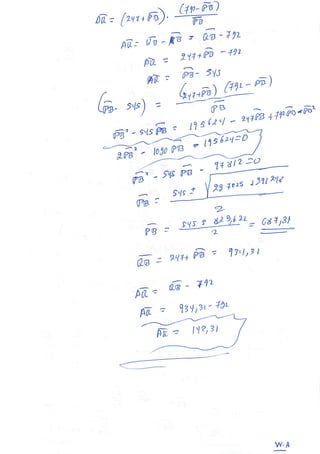 AQ = (247+PB) · (792-PB) / PB
AQ = QB - AB = QB - 792
AQ = 247+PB - 792
AQ = PB - 545
(PB - 545) = (247+PB) (792 - PB) / PB
PB² - 545 PB = 195624 - 247PB + 792PB - PB²
2PB² - 1090 PB - 195624=0
PB² - 545 PB - 97812 = 0
PB = 545 ± √297025 + 391248 / 2
PB = 545 ± 829,622 / 2 = 687,31
QB = 247+ PB = 934,31
AQ = QB - 792
AQ = 934,31 - 792
AQ = 142,31
W.A